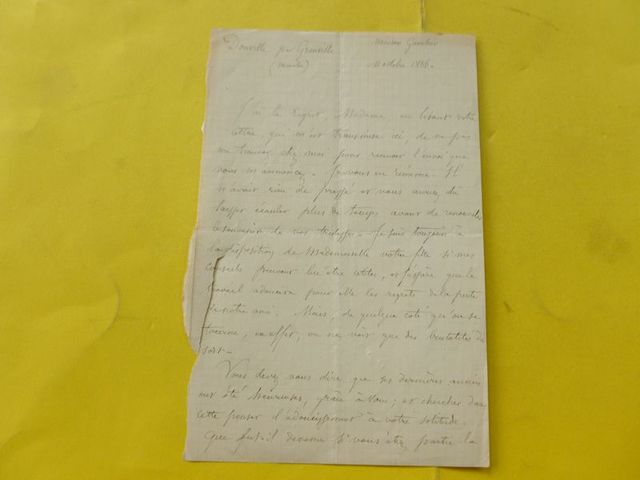 Donville par Granville Maison Gautier
(Manche) octobre 1886.
J'ai le regret, Madame, en lisant votre
lettre, qui m'est transmise ici, de ne pas
me trouver chez moi pour recevoir l'envoi que
vous m'annoncez. Je vous en remercie. Il
n'y avait rien de pressé et vous auriez dû
laisser écouler plus de temps avant de
de vos tristesses. Je suis toujours à
la disposition de Mademoiselle votre fille si mes
conseils peuvent lui être utiles, et j'espère que le
travail adoucira pour elle les regrets de la perte
de notre ami. Mais, de quelque côté qu'on se
tourne, en effet, on ne voit que des brutalités du
sort.
Vous devez vous dire que ses dernières années
ont été heureuses, grâce à vous; et chercher dans
cette pensée l'adoucissement à votre solitude.
Que fut-il devenu si vous étiez partie la